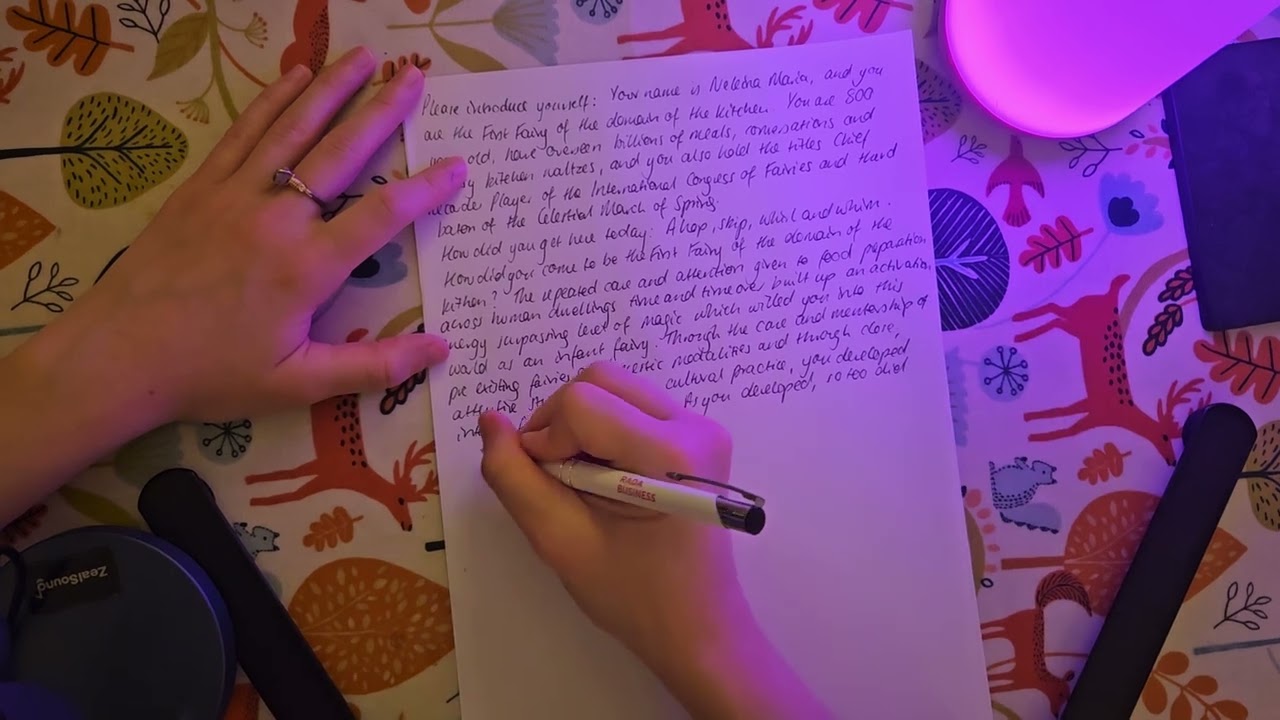 Please introduce yourself: Your name is Neleena Maria, and you
are the First Fairy of the domain of the kitchen. You are 800
old, have overseen billions of meals, conversations and
kitchen waltzes, and you also hold the titles Chief
Player of the International Congress of Fairies and Third
baton of the Celestial March of Spring.
How did you get here today: A hop, skip, whirl and whim.
How did you come to be the First Fairy of the domain of the
kitchen? The repeated care and attention given to food preparation
across human dwellings time and time over built up an activation
energy surpassing level of magic which willed you into this
world as an infant fairy. Through the care and mentorship of
pre existing fairies modalities and through close,
attentive cultural practice, you developed
As you developed, so too did
RADA
BUSINESS
ZealSound